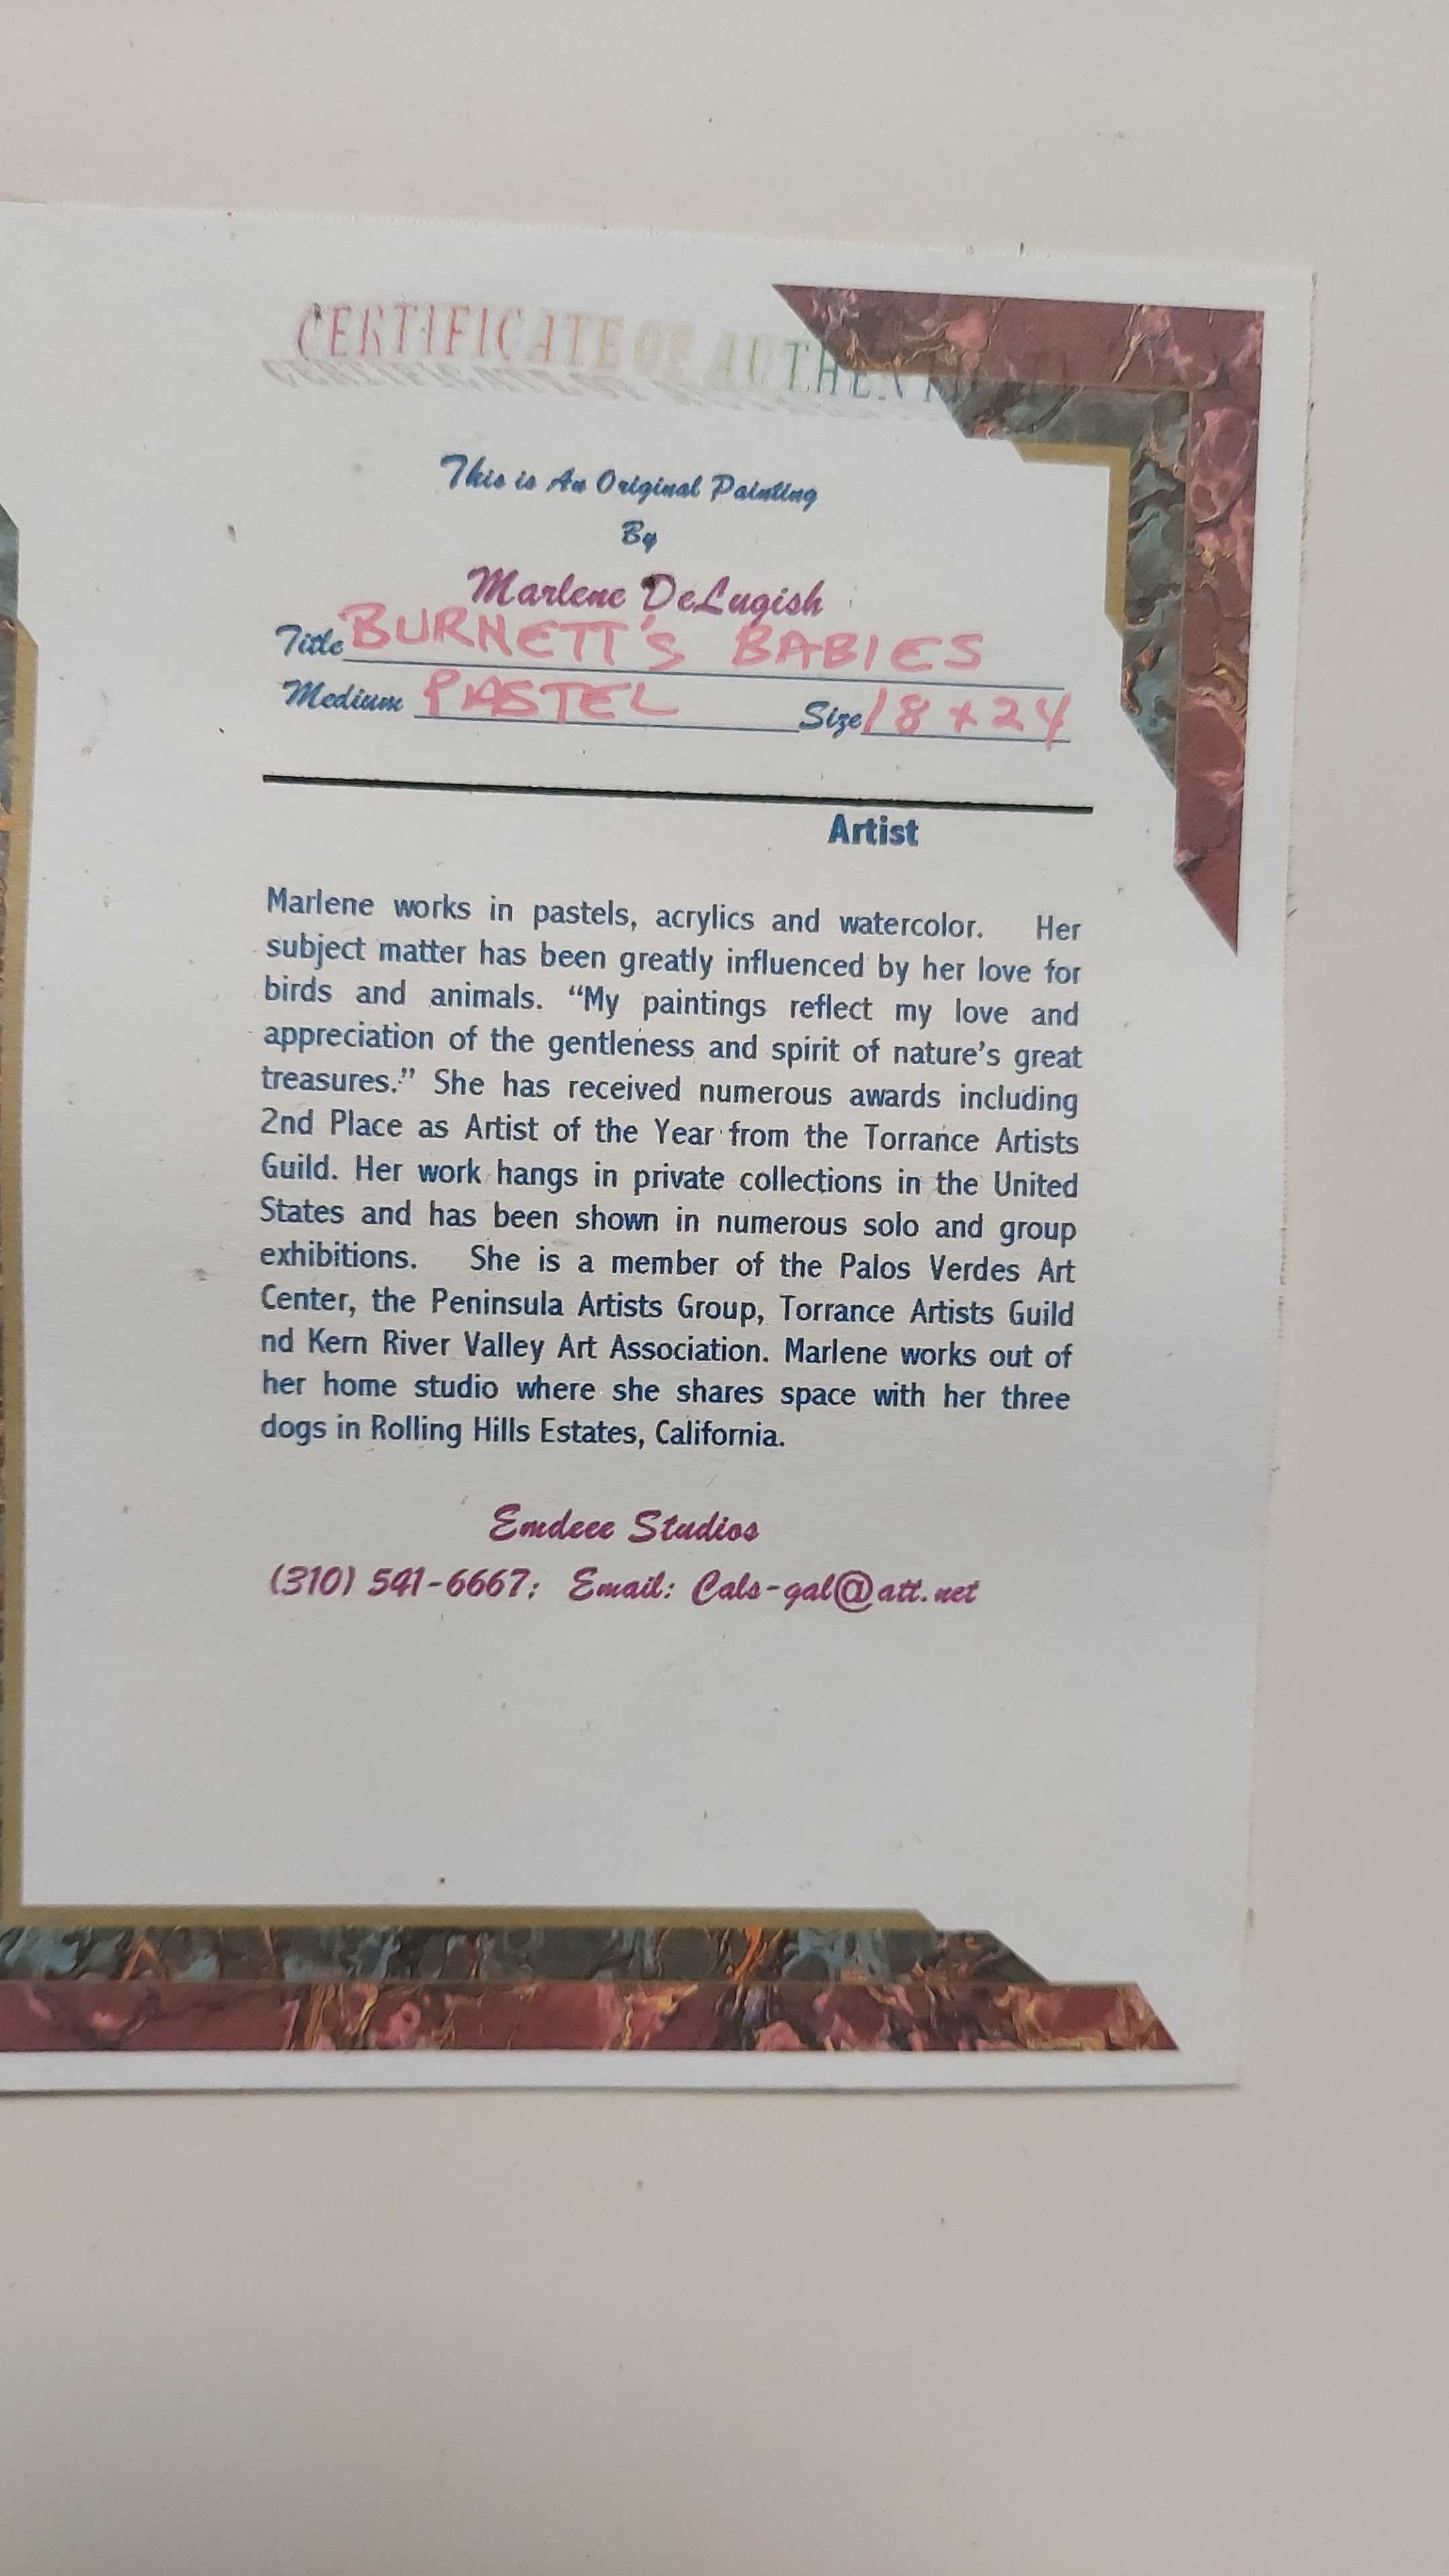 CERTIFICATE OF AUTHEN
This is An Original Painting
By
Marlene DeLugish
Title BURNETT'S BABIES
Medium PASTEL Size 18 x 24
Artist
Marlene works in pastels, acrylics and watercolor. Her
subject matter has been greatly influenced by her love for
birds and animals. “My paintings reflect my love and
appreciation of the gentleness and spirit of nature’s great
treasures.” She has received numerous awards including
2nd Place as Artist of the Year from the Torrance Artists
Guild. Her work hangs in private collections in the United
States and has been shown in numerous solo and group
exhibitions. She is a member of the Palos Verdes Art
Center, the Peninsula Artists Group, Torrance Artists Guild
nd Kern River Valley Art Association. Marlene works out of
her home studio where she shares space with her three
dogs in Rolling Hills Estates, California.
Emdeee Studios
(310) 541-6667; Email: Cals-gal@att.net